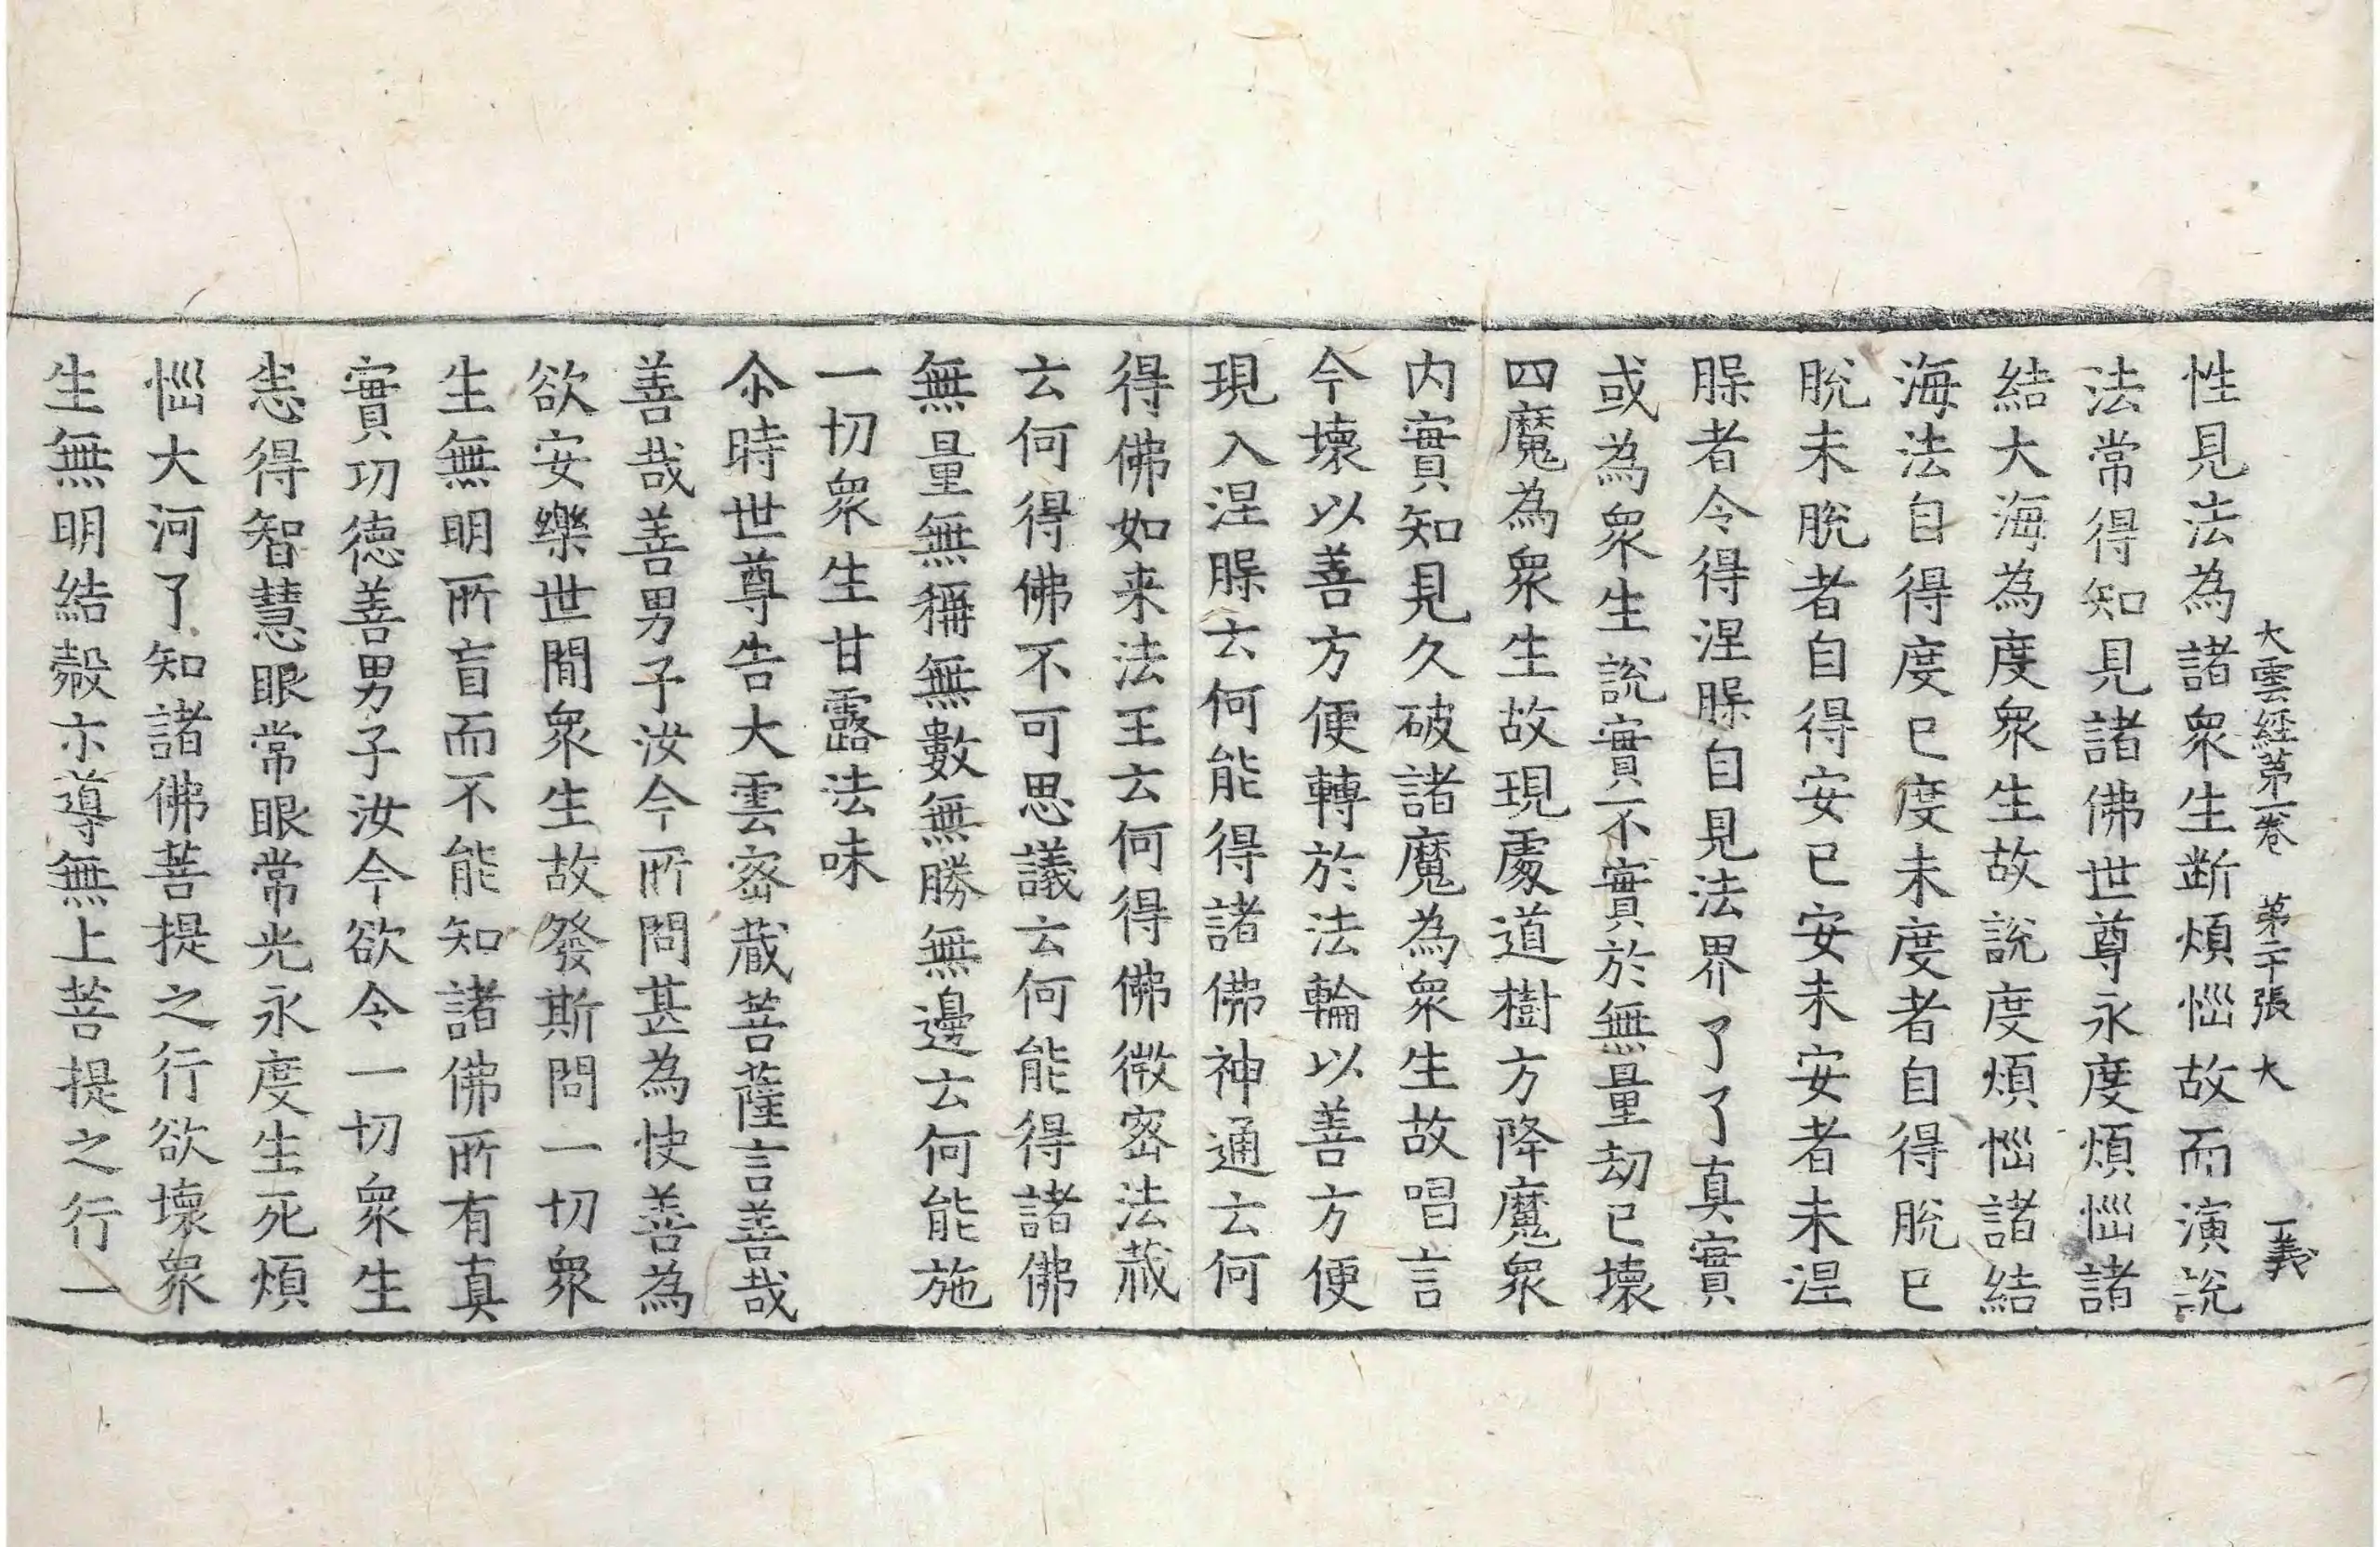 大雲経苐一卷　苐二十張　大　一義
性見法為諸衆生断煩惱故而演說
法常得知見諸佛世尊永度煩惱諸
結大海為度衆生故說度煩惱諸結
海法自得度已度未度者自得脫已
脫未脫者自得安已安未安者未涅
腂者令得涅腂自見法界了了真實
或為衆生說實不實於無量劫已壞
四魔為衆生故現處道樹方降魔衆
内實知見久破諸魔為衆生故唱言
今壞以善方便轉於法輪以善方便
現入涅腂云何能得諸佛神通云何
得佛如来法王云何得佛微宻法蔵
云何得佛不可思議云何能得諸佛
無量無稱無數無勝無邊云何能施
一切衆生甘露法味
尒時世尊告大雲宻蔵菩薩言善哉
善哉善男子汝今所問甚為快善為
欲安樂世間衆生故發斯問一切衆
生無明所盲而不能知諸佛所有真
實功德善男子汝今欲令一切衆生
悉得智慧眼常眼常光永度生死煩
惱大河了知諸佛菩提之行欲壞衆
生無明結㲉亦導無上菩提之行一